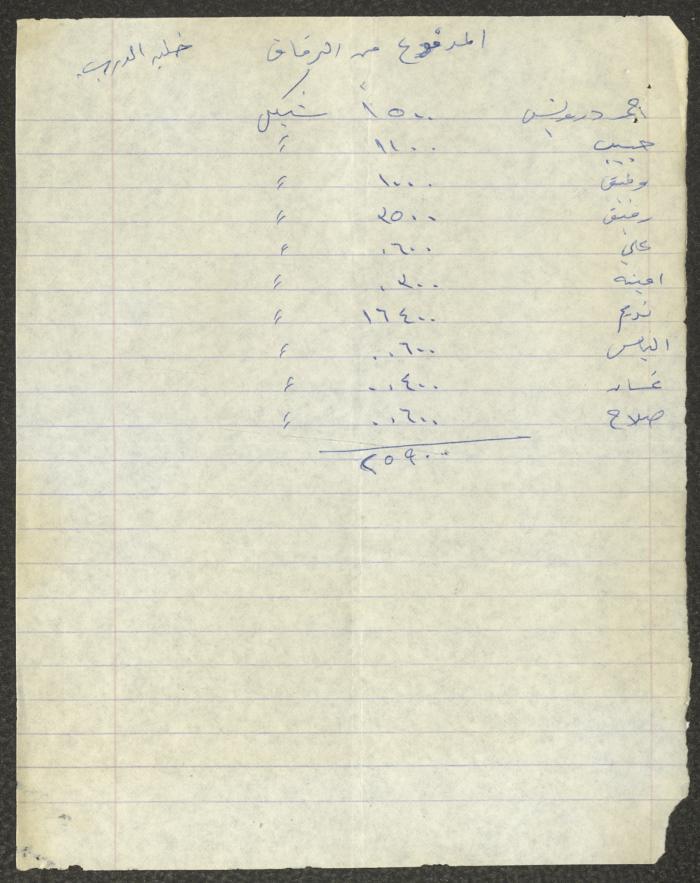 المدفوع من الرفاق
احمد درويش ١٥٠٠ شيكل
حبيب ١١٠٠ "
وفيق ١٠٠٠ "
رفيق ٣٥٠٠ "
علي .٦٠٠ "
امينه .٣٠٠ "
نديم ١٦٤٠٠ "
الياس ..٦٠٠ "
غسان ..٤٠٠ "
صلاح ..٦٠٠ "
٢٥٩٠٠